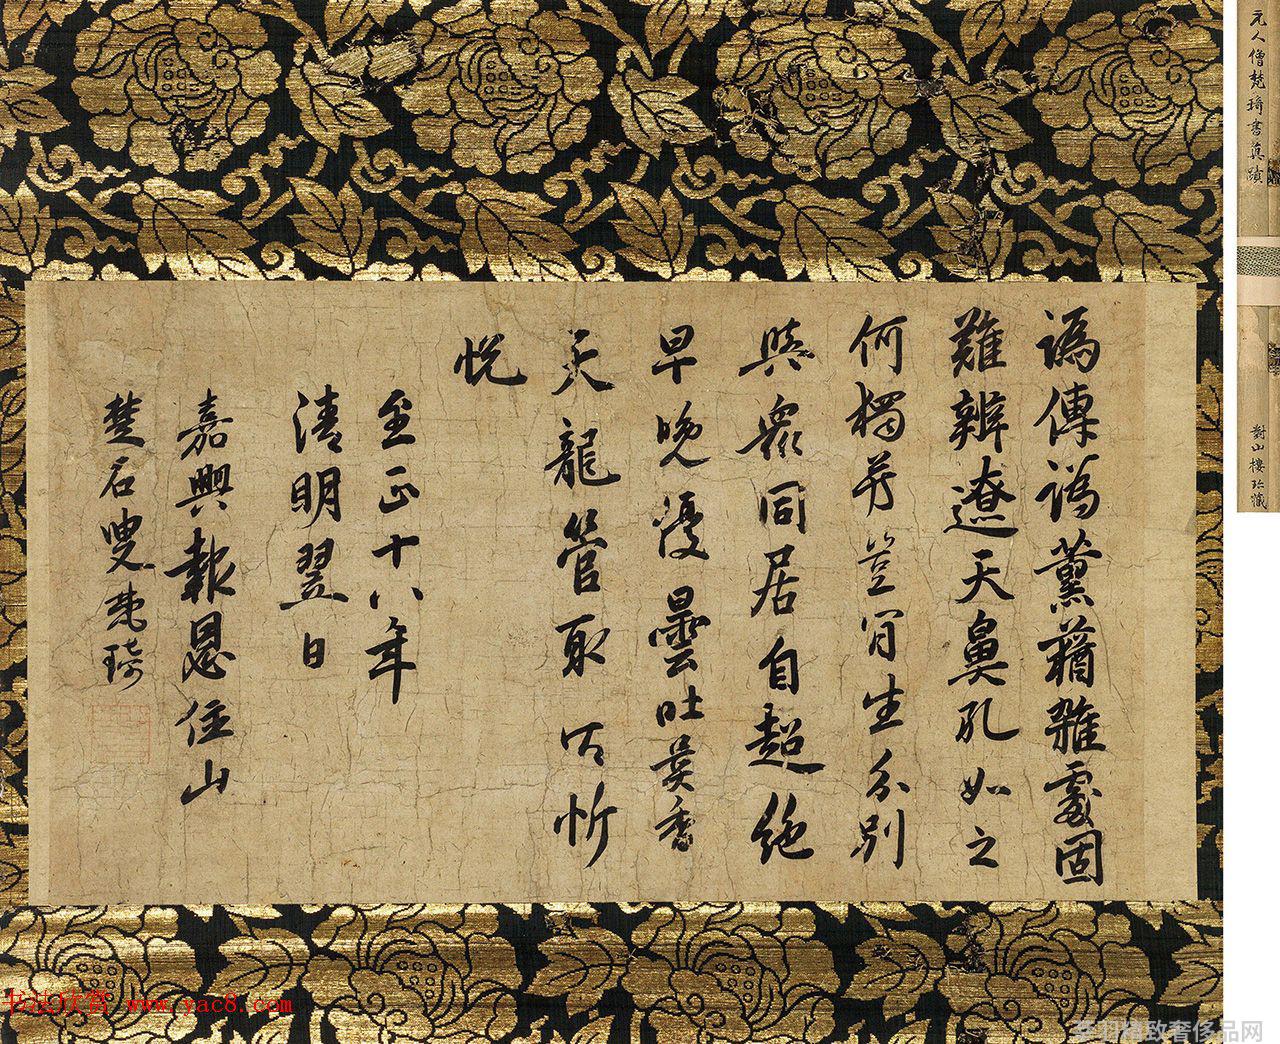 元人僧梵琦書真蹟
對山樓珍藏
譌傳譌薰蕕雜處固
難辨遼天鼻孔如之
何豈肎生分別
與衆同居自超絶
早晚優曇吐異香
天龍管取忻
悅
至正十八年
清明翌日
嘉興報恩住山
楚石叟梵琦
书法欣赏 www.yac8.com
羽精致奢侈品网